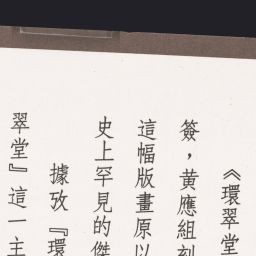 《環翠堂
簽，黃應組刻
這幅版畫原以
史上罕見的傑
據攷『環
翠堂』這一主